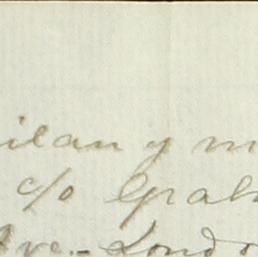 ilan y m
c/o Grah
Ave. - Londo